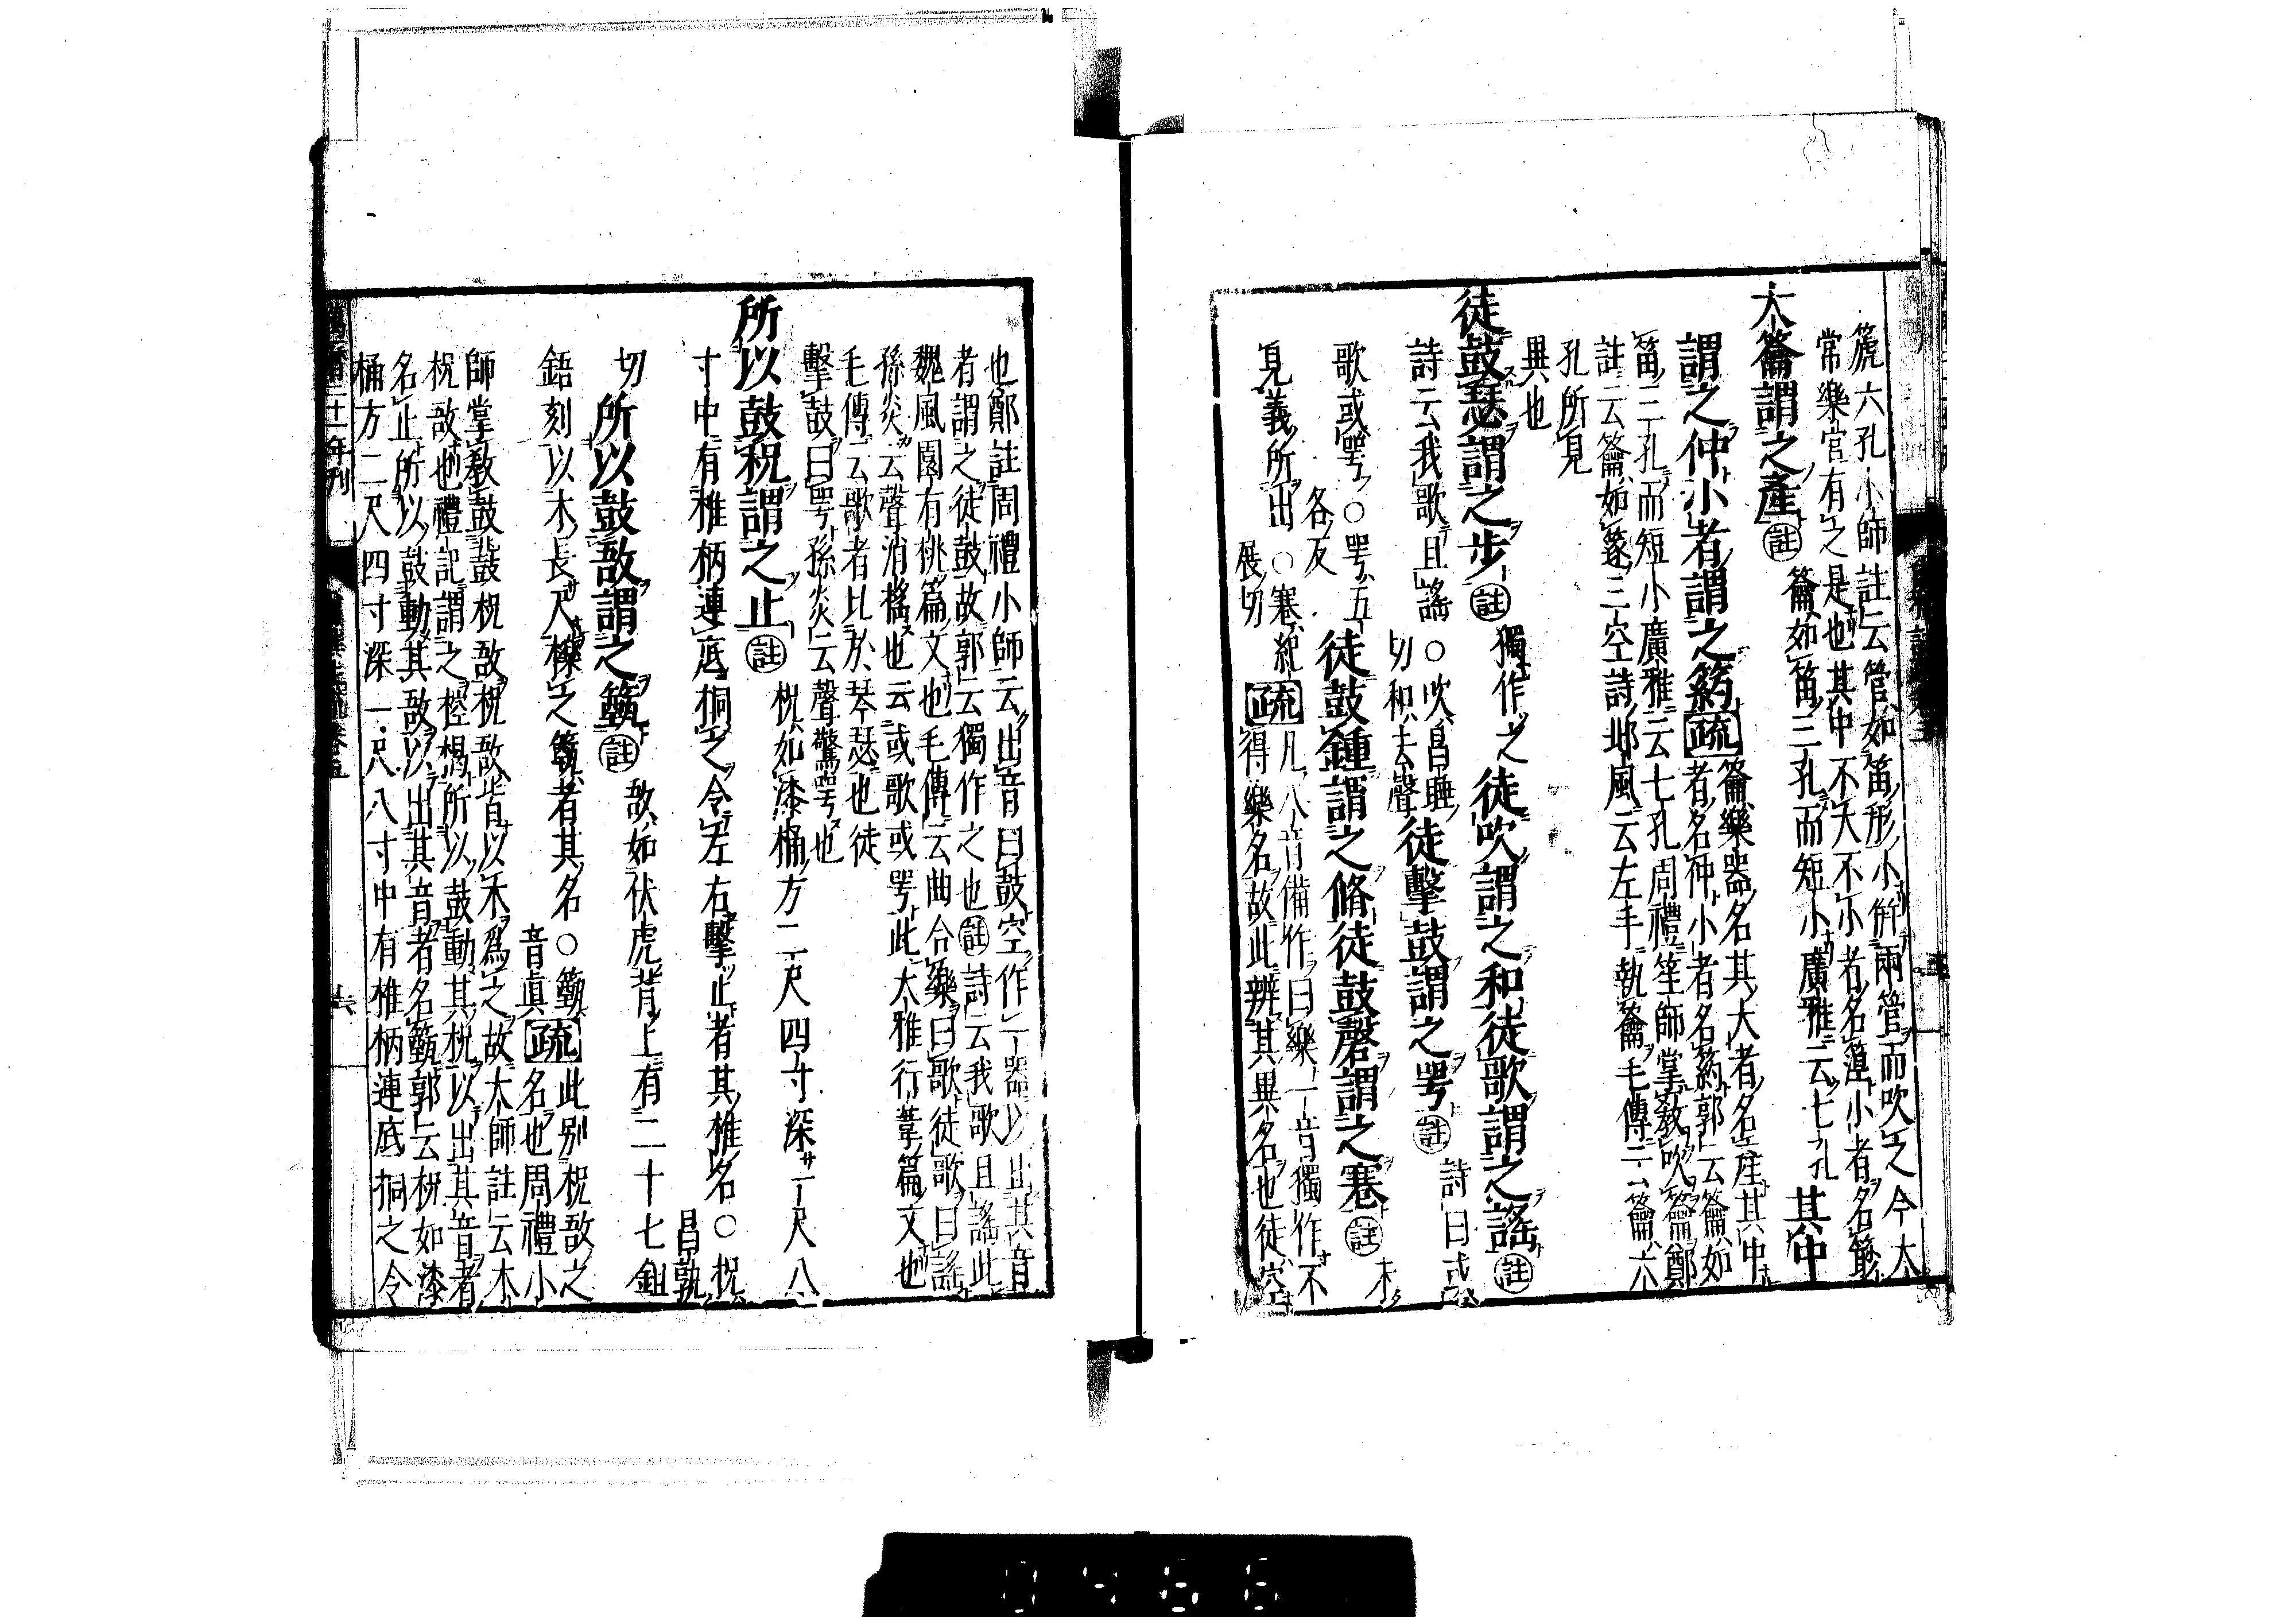 篪六孔小師註云管如笛形小併兩管而吹之今大
常樂官有之是也其中不大不小者名篞小者名篎
大籥謂之產註籥如笛三孔而短小廣雅云七孔其中
謂之仲小者謂之箹疏籥樂器名其大者名產其中
者名仲小者名箹郭云籥如
笛三孔而短小廣雅云七孔周禮笙師掌教吹籥鄭
註云籥如篴三空詩邶風云左手執籥毛傳云籥六
孔所見
異也
徒鼓瑟謂之步註獨作之徒吹謂之和徒歌謂之謠註
詩云我歌且謠○吹昌睡
切和去聲徒擊鼓謂之咢註詩曰或
歌或咢○咢五
各反徒鼓鍾謂之脩徒鼓磬謂之寋註未
見義所出○寋紀
展切疏凡八音備作曰樂一音獨作不
得樂名故此辨其異名也徒空
也鄭註周禮小師云出音曰鼓空作一器以出其音
者謂之徒鼓故郭云獨作之也註詩云我歌且謠此
魏風園有桃篇文也毛傳云曲合樂曰歌徒歌曰謠
孫炎云聲消搖也云或歌或咢此大雅行葦篇文也
毛傳云歌者比於琴瑟也徒
擊鼓曰咢孫炎云聲驚咢也
所以鼓柷謂之止註柷如漆桶方二尺四寸深一尺八
寸中有椎柄連底挏之令左右擊止者其椎名○柷
昌孰
切所以鼓敔謂之籈註敔如伏虎背上有二十七鉏
鋙刻以木長尺櫟之籈者其名○籈
音真疏此別柷敔之
名也周禮小
師掌教鼓鼗柷敔柷敔皆以木爲之故大師註云木
柷敔也禮記謂之椌楬所以鼓動其柷以出其音者
名止所以鼓動其敔以出其音者名籈郭云柷如漆
桶方二尺四寸深一尺八寸中有椎柄連底挏之令